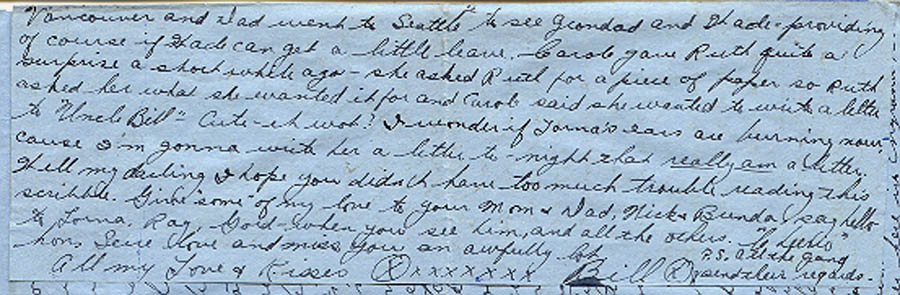 Vancouver and Dad went to Seattle" to see Grondad and Hade - providing
of course if Hade can get a little leave. Carole gave Ruth quite a
surprise a short while ago - she asked Ruth for a piece of paper so Ruth
asked her what she wanted it for and Carole said she wanted to write a letter
to "Uncle Bill" Cute - eh wot? I wonder if Lorna's ears are burning now,
cause I'm gonna write her a letter to-night that really am a letter.
Well my darling I hope you didn't have too much trouble reading this
scribble. Give some of my love to your Mom & Dad, Nick & Bunda, say hello
to Lorna, Ray, Gord when you see him, and all the others.
hon, I love and miss you an awfully lot
P.S. All the gang
send their regards.
All my Love & Kisses (X) x x x x x x x Bill (X)